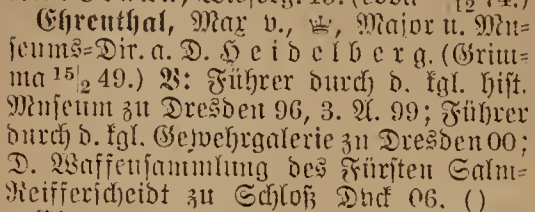 Ehrenthal, Max v., Major u. Mu=
seums=Dir. a. D. Heidelberg. (Grim=
ma 15/2 49.) V: Führer durch d. kgl. hist.
Museum zu Dresden 96, 3. A. 99; Führer
durch d. kgl. Gewehrgalerie zu Dresden 00;
D. Waffensammlung des Fürsten Salm=
Reifferscheidt zu Schloß Dyck 06. ()